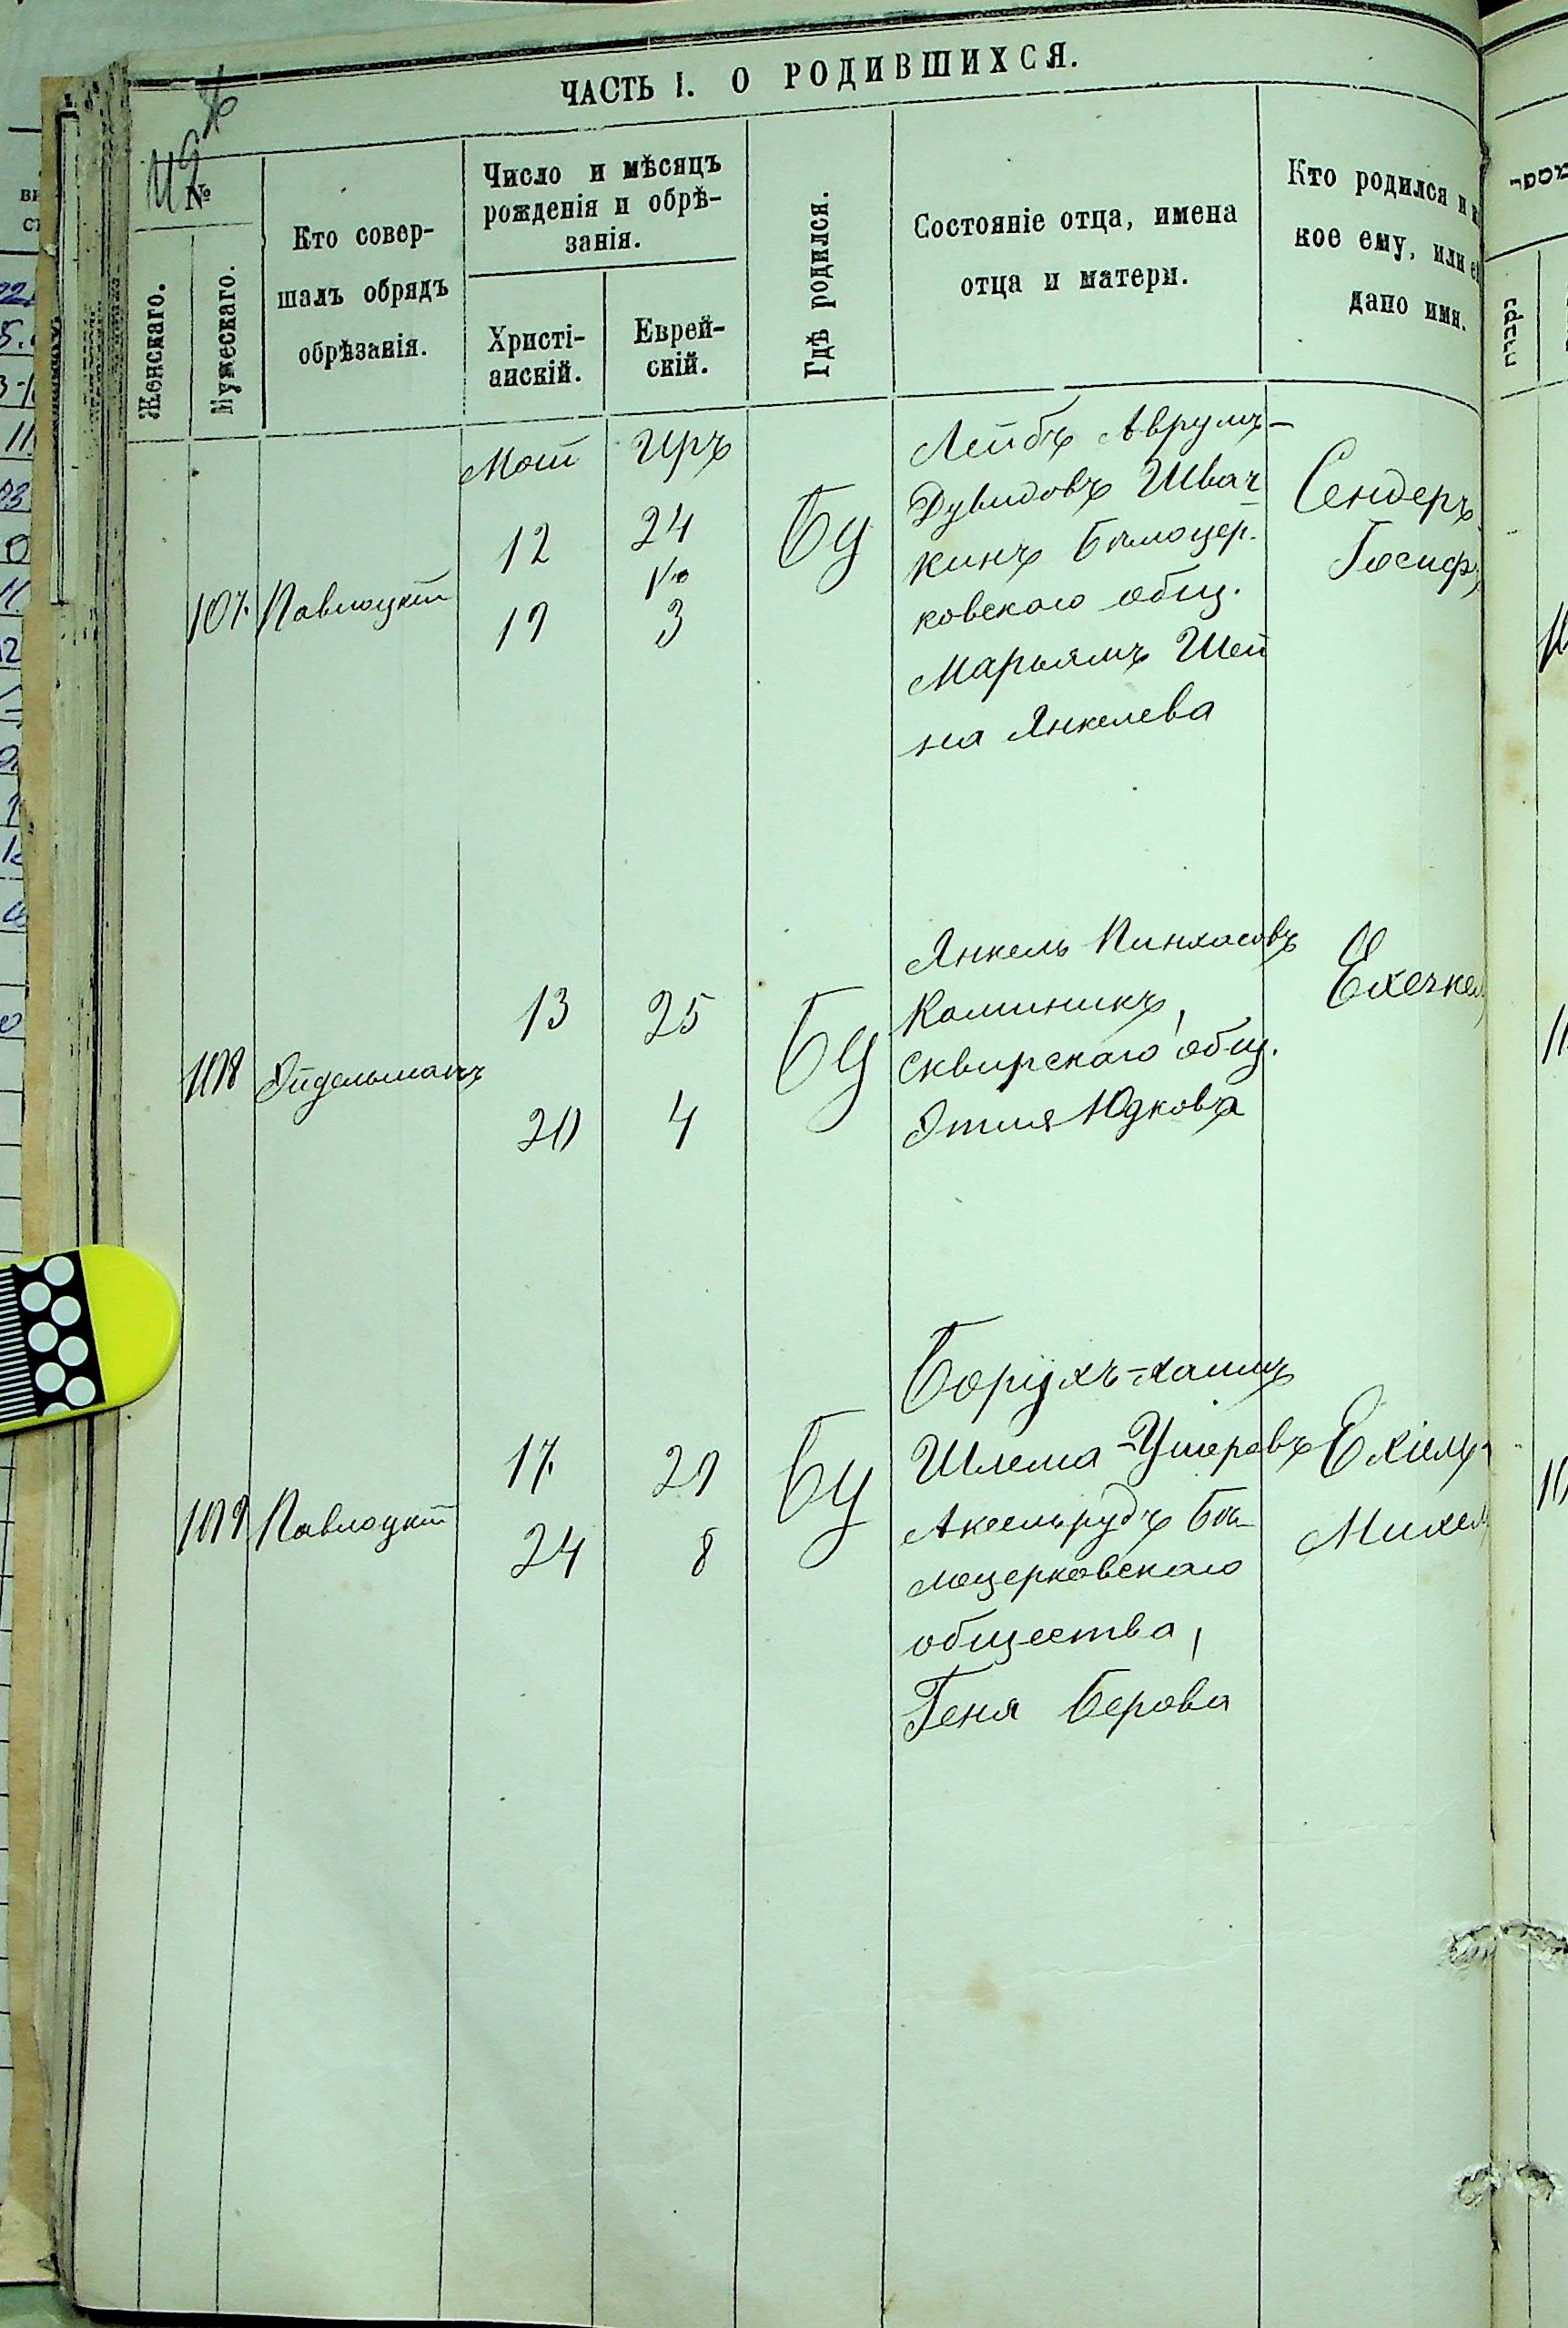 ЧАСТЬ I. О РОДИВШИХСЯ.
№
Женскаго.
Мужескаго.
Кто совер-
шалъ обрядъ
обрѣзанія.
Число и мѣсяцъ
рожденія и обрѣ-
занія.
Христі-
анскій.
Еврей-
скій.
Гдѣ родился.
Состояніе отца, имена
отца и матери.
Кто родился и
кое ему, или
дано имя.
107.
Павлоцкій
Маій
12
19
Иръ
24
3
БЦ
Лейбъ Аврумъ-
Дувидовъ Швач
кинъ Бѣлоцер-
ковскаго общ.
Марьямъ Шей
на Янкелева
Сендеръ
Іосифъ
108
Эйдельманъ
13
20
25
4
БЦ
Янкель Пинхасовъ
Каминикъ,
Сквирскаго общ.
Этля Юдкова
Ехечкел
109
Павлоцкій
17.
24
29
8
БЦ
Борухъ-хаимъ
Шлема-Ушеровъ
Аксельрудъ Бѣ-
лоцерковскаго
общества,
Геня Берова
Ехіель-
Михел